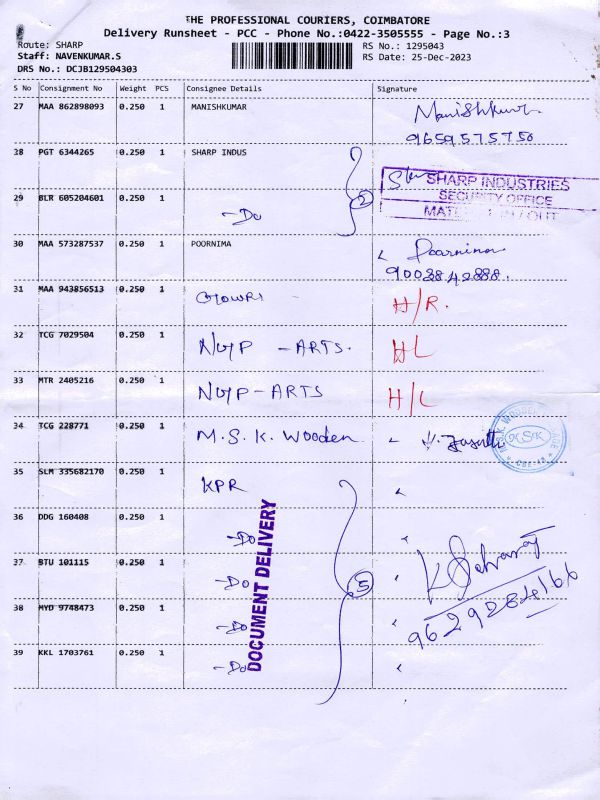 THE PROFESSIONAL COURIERS, COIMBATORE
Delivery Runsheet - PCC - Phone No.:0422-3505555 - Page No.:3
Route: SHARP
Staff: NAVENKUMAR.S
DRS No.: DCJB129504303
RS No.: 1295043
RS Date: 25-Dec-2023
S No Consignment No Weight PCS Consignee Details Signature
27 MAA 862898093 0.250 1 MANISHKUMAR Manishkumar
9659575750
28 PGT 6344265 0.250 1 SHARP INDUS
SHARP INDUSTRIES
SECURITY OFFICE
29 BLR 605204601 0.250 1 -Do 2
30 MAA 573287537 0.250 1 POORNIMA Poornima
9003842888.
31 MAA 943856513 0.250 1 GOWRI H/R.
32 TCG 7029504 0.250 1 NGP - ARTS. HL
33 MTR 2405216 0.250 1 NGP-ARTS H/L
34 TCG 228771 0.250 1 M.S.K. Wooden
MSK
35 SLM 335682170 0.250 1 KPR
36 DDG 160408 0.250 1 -Do
37 BTU 101115 0.250 1 -Do 5
38 MYD 9748473 0.250 1 -Do
9629284166
39 KKL 1703761 0.250 1 -Do
DOCUMENT DELIVERY